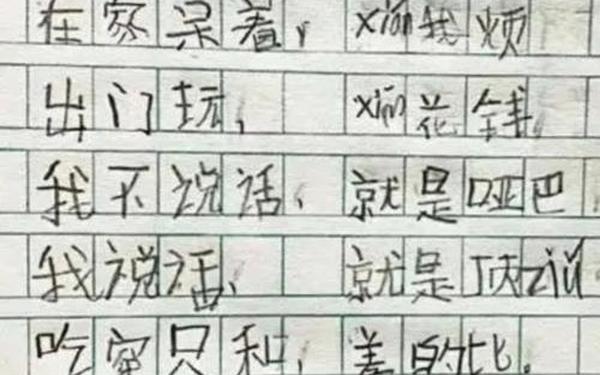 在家呆着，xián我烦
出门玩，xián花钱
我不说话，就是哑巴
我说话，就是顶zuǐ
吃家只和，羞的比。